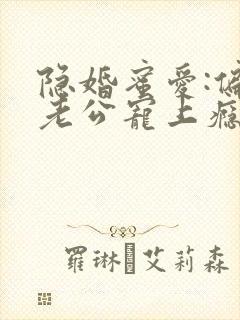 隐婚蜜爱:偏
老公宠上瘾
羅琳 艾莉森